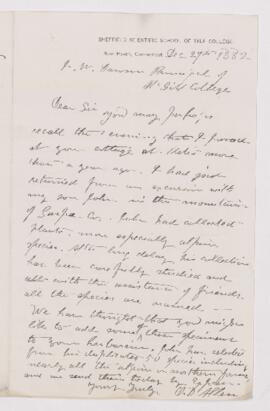 SHEFFIELD SCIENTIFIC SCHOOL OF YALE COLLEGE,
New Haven, Connecticut, Dec 29th 1882
J. W. Dawson Principal of
McGill College
Dear Sir you may perhaps
recall the evening that I passed
at your cottage at Metis more
than a year ago. I had just
returned from an excursion with
my son John in the mountains
of Gaspé Co. John had collected
plants, more especially alpine
species. After long delay his collection
has been carefully studied and
with the assistance of friends
all the species are named —
We have thought that you might
like to add some of them specimens
to your herbarium. John has selected
from his duplicates 50 species including
nearly all the alpine or northern forms
and we send them today by Express
Yours truly, O. D. Allen